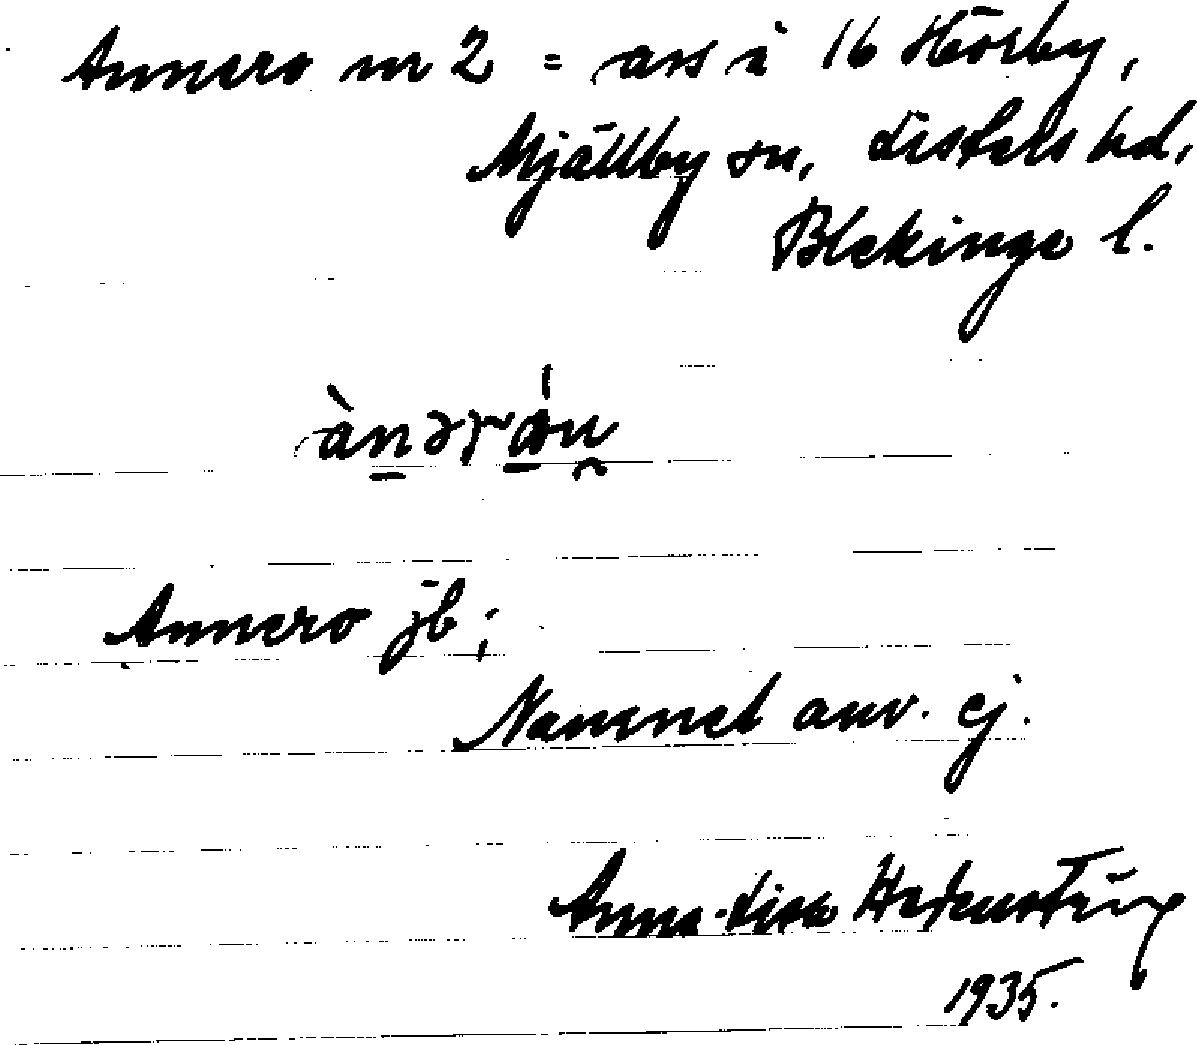 Annero nr 2 = ass i 16 Hörby,
Mjällby sn, Listers hd,
Blekinge l.
Annero jb;
Namnet anv. ej.
Anna-Lisa
1935.